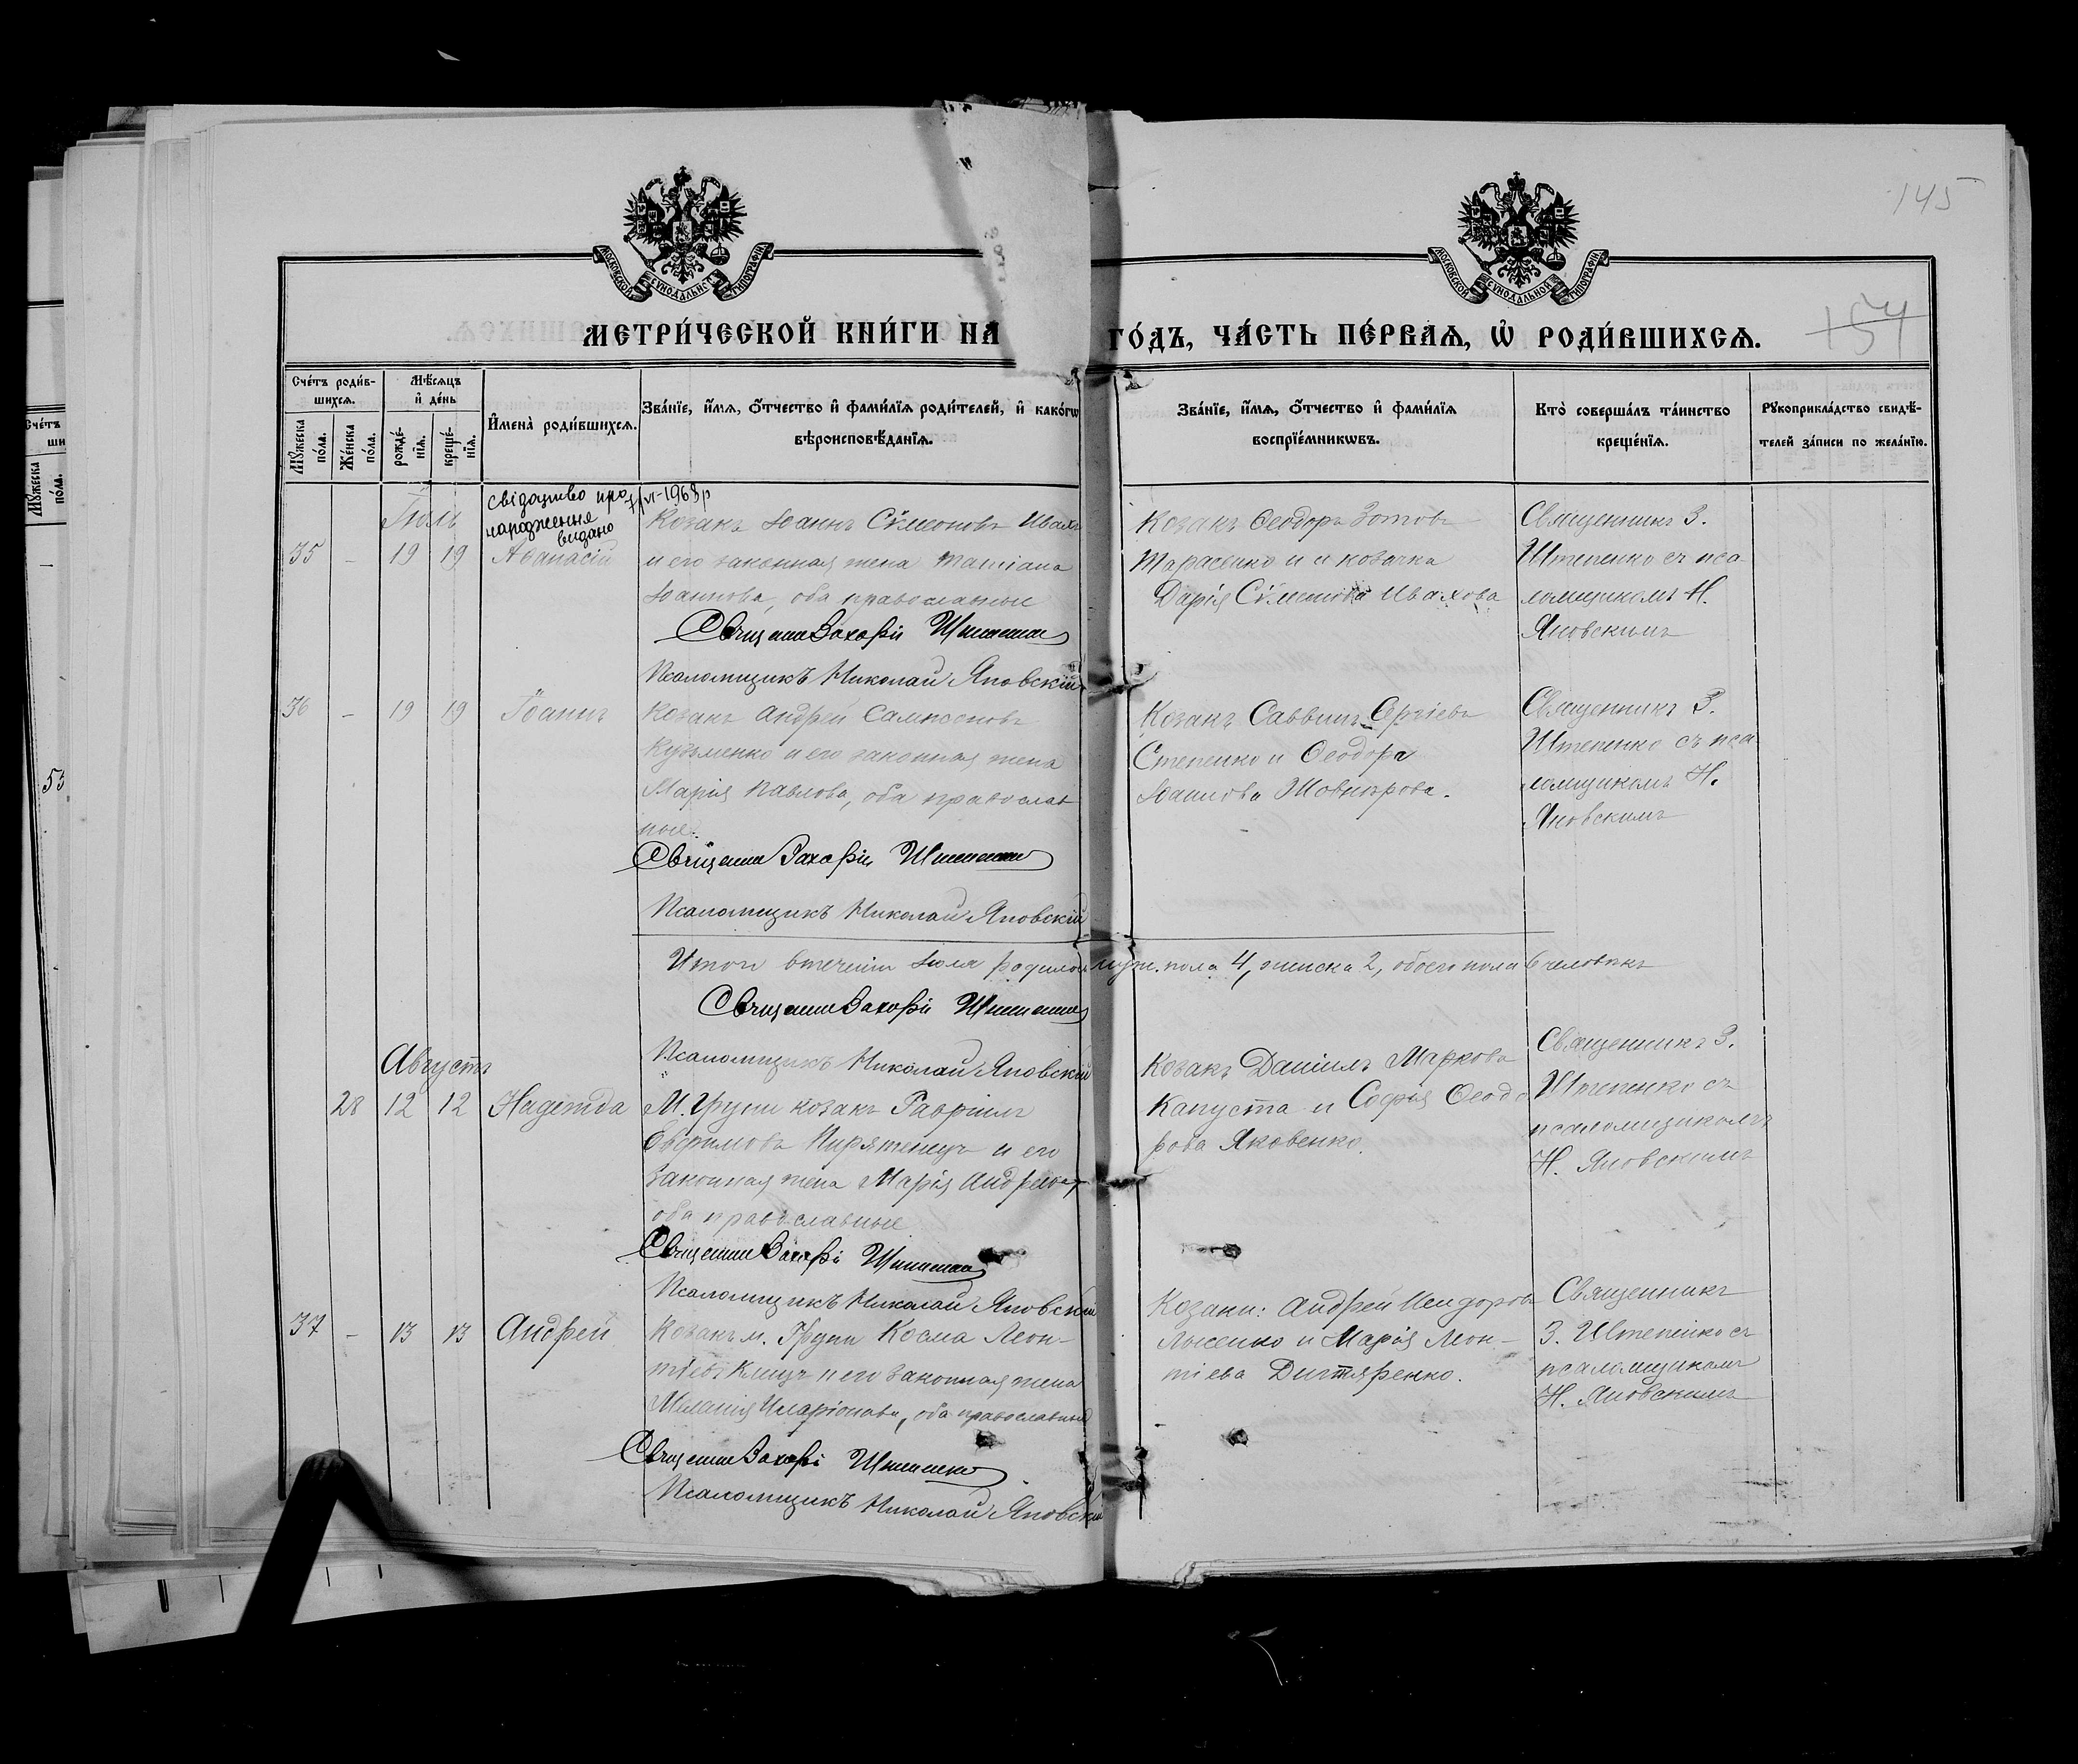 145
МОСКОВСКОЙ СѴНОДАЛЬНОЙ ТИПОГРАФІИ
МОСКОВСКОЙ СѴНОДАЛЬНОЙ ТИПОГРАФІИ
154
МЕТРИ́ЧЕСКОЙ КНИ́ГИ НА ГО́ДЪ, ЧА́СТЬ ПЕ́РВАѦ, Ѡ҆ РОДИ́ВШИХСѦ.
Сче́тъ роди́в-
шихсѧ.
Мѣ́сѧцъ
и҆ де́нь
Мꙋ́жеска по́ла.
Же́нска по́ла.
рожде́-
нїѧ.
креще́-
нїѧ.
И҆мена̀ роди́вшихсѧ.
Зва́нїе, и҆́мѧ, ѻ҆́тчество и҆ фами́лїѧ роди́телей, и҆ како́гѡ
вѣроисповѣ́данїѧ.
Зва́нїе, и҆́мѧ, ѻ҆́тчество и҆ фами́лїѧ
воспрїе́мникѡвъ.
Кто̀ соверша́лъ та́инство
креще́нїѧ.
Рꙋкоприкла́дство свидѣ́-
телей за́писи по жела́нїю.
свідоцтво про
народження
видано
Іюль
35 - 19 19 Аѳанасій
Козакъ Іоаннъ Сѵмеоновъ Ивах
и его законная жена Татіана
Іоаннова, оба православные
Священникъ Захарій Штепенко
Псаломщикъ Николай Яновскій
Козакъ Ѳеодоръ Зотовъ
Тарасенко и козачка
Дарія Сѵмеонова Ивахова
Священникъ З.
Штепенко съ пса-
ломщикомъ Н.
Яновскимъ
36 - 19 19 Іоаннъ
Козакъ Андрей Сампсоновъ
Кузьменко и его законная жена
Марія Павлова, оба православ
ные.
Священникъ Захарій Штепенко
Псаломщикъ Николай Яновскій
Козакъ Саввинъ Сергіевъ
Степенко и Ѳеодора
Іоаннова Шовкорова.
Священникъ З.
Штепенко съ пса-
ломщикомъ Н.
Яновскимъ
Итого втеченіи Іюля родилось муж. пола 4, женска 2, обоего пола 6 человѣкъ
Священникъ Захарій Штепенко
Псаломщикъ Николай Яновскій
Августъ
28 12 12 Надежда
М. Груни козакъ Гавріилъ
Евфимовъ Пирятенецъ и его
законная жена Марія Андреева,
оба православные
Священникъ Захарій Штепенко
Псаломщикъ Николай Яновскій
Козакъ Даніилъ Марковъ
Капуста и Софія Ѳеодо
рова Яковенко.
Священникъ З.
Штепенко съ
псаломщикомъ
Н. Яновскимъ
37 - 13 13 Андрей
Козакъ м. Груни Косма Леон-
тіевъ Клищъ и его законная жена
Меланія Иларіонова, оба православные
Священникъ Захарій Штепенко
Псаломщикъ Николай Яновскій
Козаки: Андрей Исидоровъ
Лысенко и Марія Леон-
тіева Дигтяренко.
Священникъ
З. Штепенко съ
псаломщикомъ
Н. Яновскимъ
53